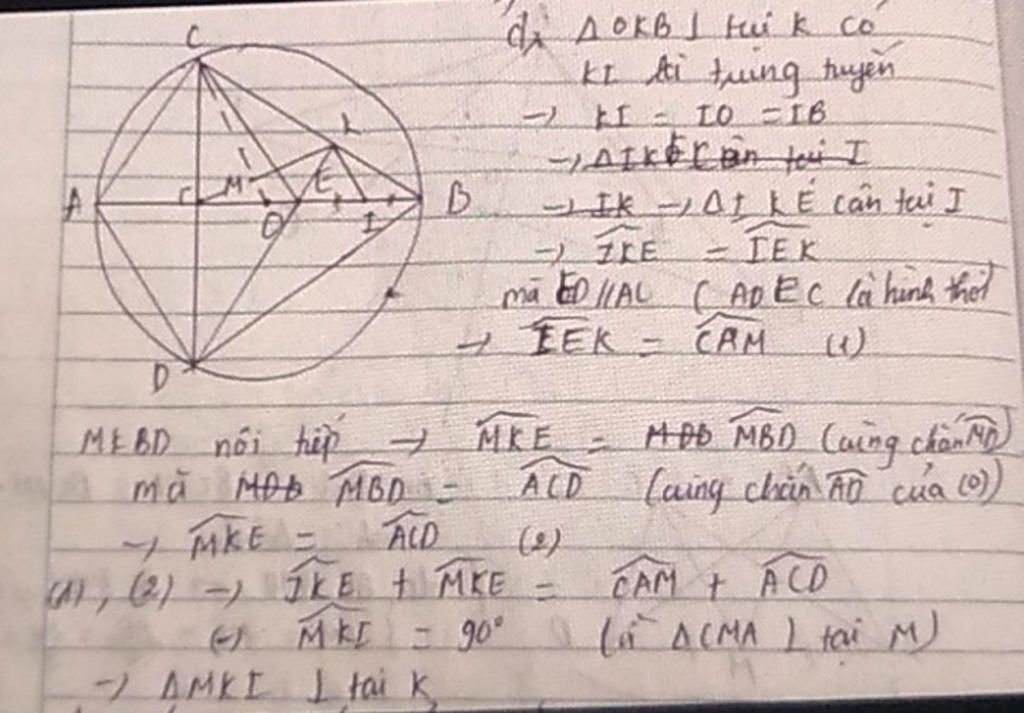 C
K
M
E
A
O
I
B
D
d, ΔOKB ⊥ tại K có
KI là trung tuyến
→ KI = IO = IB
→ ΔIKE cân tại I
→ IK → ΔIKE cân tại I
→ IKE = IEK
mà ED // AC (ADEC là hình thoi
→ IEK = CAM (1)
MKBD nội tiếp → MKE = MDB MBD (cùng chắn MD)
mà MDB MBD = ACD (cùng chắn AD của (O))
→ MKE = ACD (2)
(1), (2) → IKE + MKE = CAM + ACD
(=) MKI = 90° ( ΔCMA ⊥ tại M)
→ ΔMKI ⊥ tại K